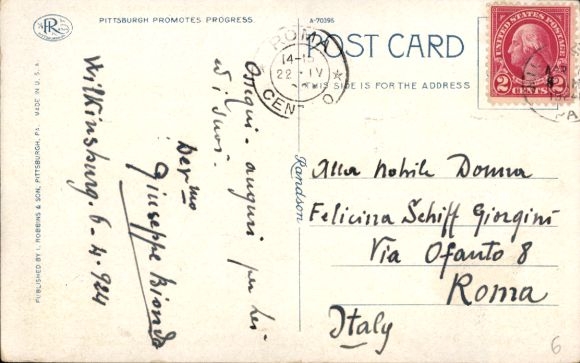 PITTSBURGH PROMOTES PROGRESS.
A-70395
POST CARD
THIS SIDE IS FOR THE ADDRESS
PUBLISHED BY I. ROBBINS & SON, PITTSBURGH, PA. MADE IN U.S.A.
Randson
ROMA
14-15
22 . IV
CENTRO
UNITED STATES POSTAGE
2 CENTS 2
PA
Ossequi - auguri per lei
e i suoi.
Dev.mo
Giuseppe Biondo
Wilkinsburg. 6-4-924
Alla Nobile Donna
Felicina Schiff Giorgini
Via Ofanto 8
Roma
Italy
6